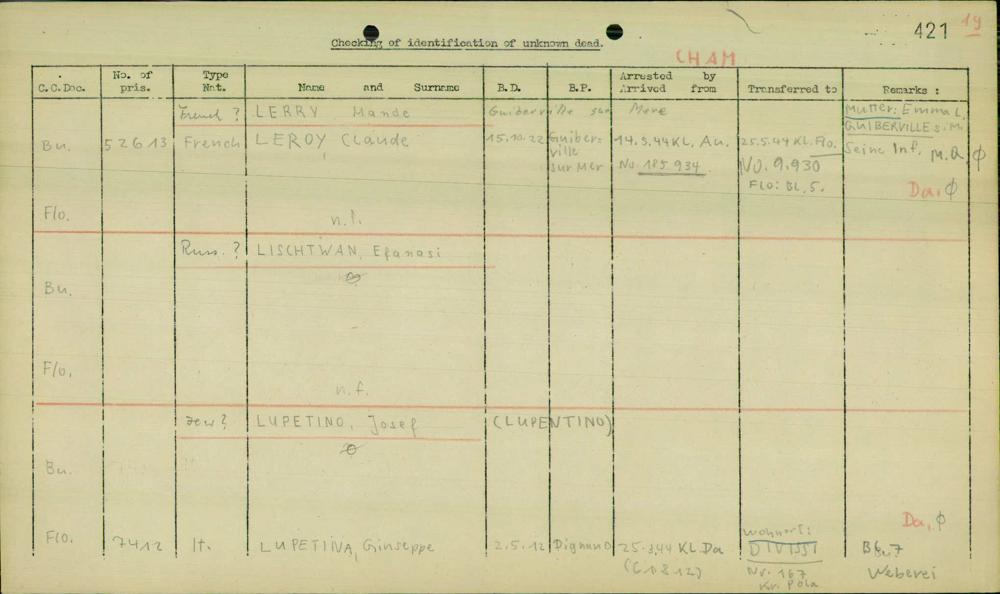 421 19
Checking of identification of unknown dead.
CHAM
C.C.Doc. No. of pris. Type Nat. Name and Surname B.D. B.P. Arrested by Arrived from Transferred to Remarks :
French ? LERRY Mande Guiberville sur Mere Mutter: Emma L.
GUIBERVILLE s. M.
Bu. 52613 French LEROY, Claude 15.10.22 Guiber- 14.5.44 KL. Au. 25.5.44 KL. Flo. Seine Inf. M.Q. ϕ
ville
sur Mer No. 185 934. No. 9.930
Flo: BL. 5. Da. ϕ
Flo. n.f.
Russ. ? LISCHTWAN, Efanasi
Bu.
Flo. n.f.
Jew ? LUPETINO, Josef (LUPENTINO)
Bu.
Da. ϕ
Flo. 7412 It. LUPETINA, Ginseppe 2.5.12 Dignano 25.3.44 KL Da Wohnort: Bl. 7
DIVISSI
Nr. 167 Weberei
Kr. Pola